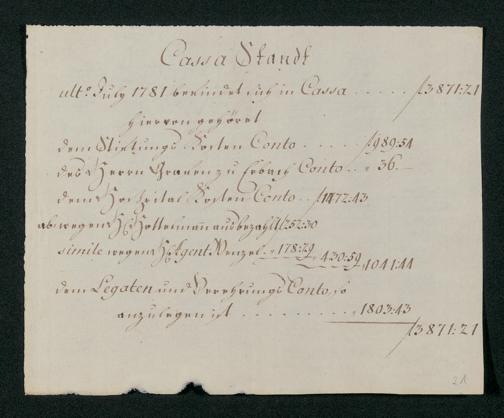 Cassa Standt
ult.º July 1781 befindet sich in Cassa . . . . . f 3871:21
hiervon gehöret
dem Stiftungs Posten Conto . . . . . f 989:54
des Herrn Grafen zu Erbach Conto . . „ 36.—
dem Hospital Posten Conto . . f 1472:43
ab wegen H. ausbezahlt f 252:30
simile wegen H. Agent Wenzel . „ 178:29
„ 430:59
„ 1041:44
dem Legaten und Verehrungs Conto, so
anzulegen ist . . . . . . . . . „ 1803:43
f 3871:21
21